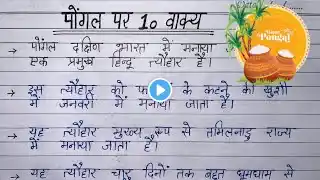 पोंगल पर 10 वाक्य
Happy Pongal
→ पोंगल दक्षिण भारत में मनाया
एक प्रमुख हिन्दू त्यौहार है।
→ इस त्यौहार को के कटने की खुशी
में जनवरी में मनाया जाता है।
→ यह त्यौहार मुख्य रूप से तमिलनाडु राज्य
में मनाया जाता है।
→ यह त्यौहार चार दिनों तक बहुत धूमधाम से